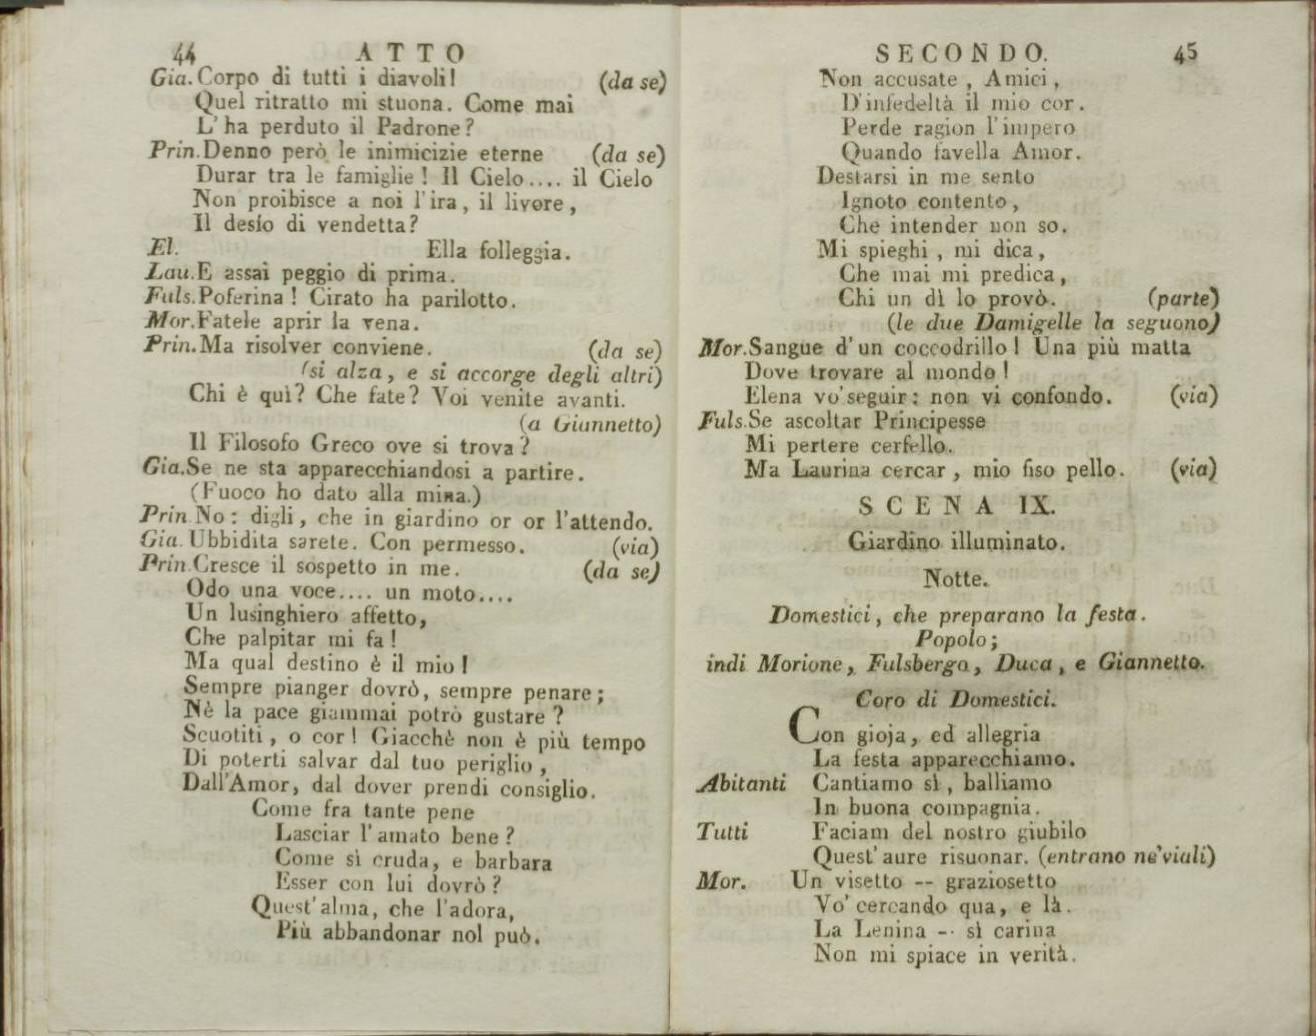 44 ATTO
Gia. Corpo di tutti i diavoli! (da se)
Quel ritratto mi stuona. Come mai
L'ha perduto il Padrone?
Prin. Denno però le inimicizie eterne (da se)
Durar tra le famiglie! Il Cielo.... il Cielo
Non proibisce a noi l'ira, il livore,
Il desío di vendetta?
El. Ella folleggia.
Lau. E assai peggio di prima.
Fuls. Poferina! Cirato ha parilotto.
Mor. Fatele aprir la vena.
Prin. Ma risolver conviene. (da se)
(si alza, e si accorge degli altri)
Chi è quì? Che fate? Voi venite avanti.
(a Giannetto)
Il Filosofo Greco ove si trova?
Gia. Se ne sta apparecchiandosi a partire.
(Fuoco ho dato alla mina.)
Prin No: digli, che in giardino or or l'attendo.
Gia. Ubbidita sarete. Con permesso. (via)
Prin. Cresce il sospetto in me. (da se)
Odo una voce.... un moto....
Un lusinghiero affetto,
Che palpitar mi fa!
Ma qual destino è il mio!
Sempre pianger dovrò, sempre penare;
Nè la pace giammai potrò gustare?
Scuotiti, o cor! Giacchè non è più tempo
Di poterti salvar dal tuo periglio,
Dall'Amor, dal dover prendi consiglio.
Come fra tante pene
Lasciar l'amato bene?
Come sì cruda, e barbara
Esser con lui dovrò?
Quest'alma, che l'adora,
Più abbandonar nol può.
SECONDO. 45
Non accusate, Amici,
D'infedeltà il mio cor.
Perde ragion l'impero
Quando favella Amor.
Destarsi in me sento
Ignoto contento,
Che intender non so.
Mi spieghi, mi dica,
Che mai mi predica,
Chi un dì lo provò. (parte)
(le due Damigelle la seguono)
Mor. Sangue d'un coccodrillo! Una più matta
Dove trovare al mondo!
Elena vo'seguir: non vi confondo. (via)
Fuls. Se ascoltar Principesse
Mi pertere cerfello.
Ma Laurina cercar, mio fiso pello. (via)
SCENA IX.
Giardino illuminato.
Notte.
Domestici, che preparano la festa.
Popolo;
indi Morione, Fulsberga, Duca, e Giannetto.
Coro di Domestici.
Con gioja, ed allegria
La festa apparecchiamo.
Abitanti Cantiamo sì, balliamo
In buona compagnia.
Tutti Faciam del nostro giubilo
Quest'aure risuonar. (entrano ne'viali)
Mor. Un visetto -- graziosetto
Vo'cercando qua, e là.
La Lenina -- sì carina
Non mi spiace in verità.